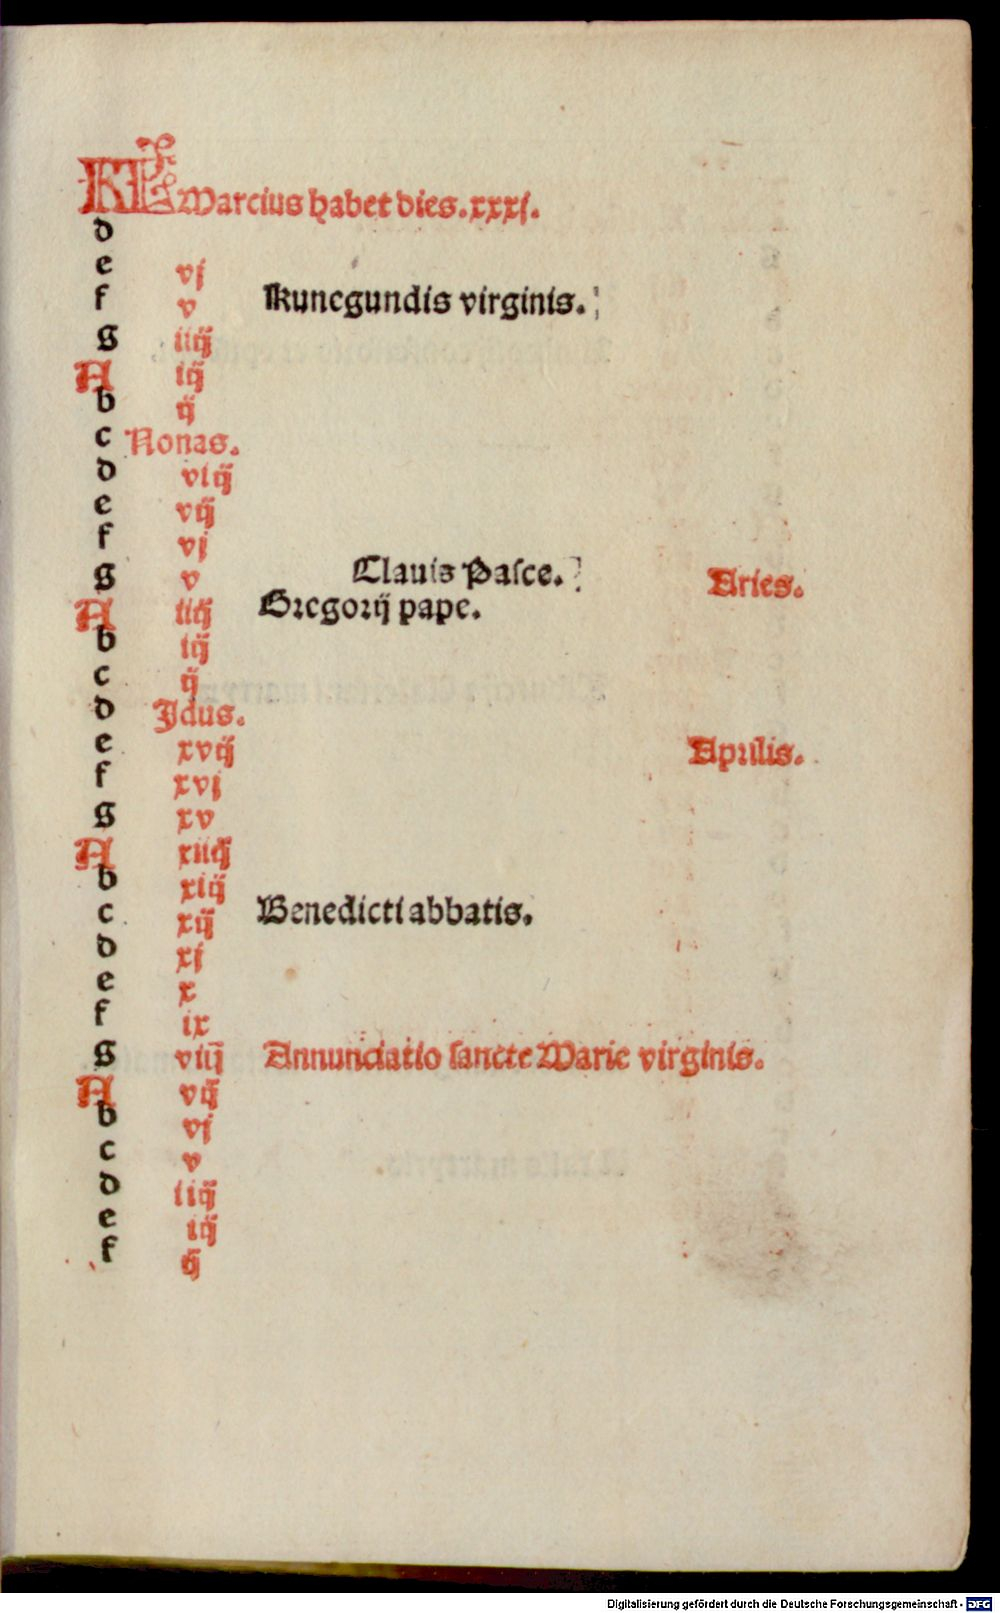 KL Marcius habet dies. xxxj.
d
e vj
f v Kunegundis virginis.
g iiij
A iij
b ij
c Nonas.
d viij
e vij
f vj
g v Clauis Pasce. Aries.
A iiij Gregorij pape.
b iij
c ij
d Jdus.
e xvij Aprilis.
f xvj
g xv
A xiiij
b xiij
c xij Benedicti abbatis.
d xj
e x
f ix
g viij Annunciatio sancte Marie virginis.
A vij
b vj
c v
d iiij
e iij
f ij
Digitalisierung gefördert durch die Deutsche Forschungsgemeinschaft - DFG